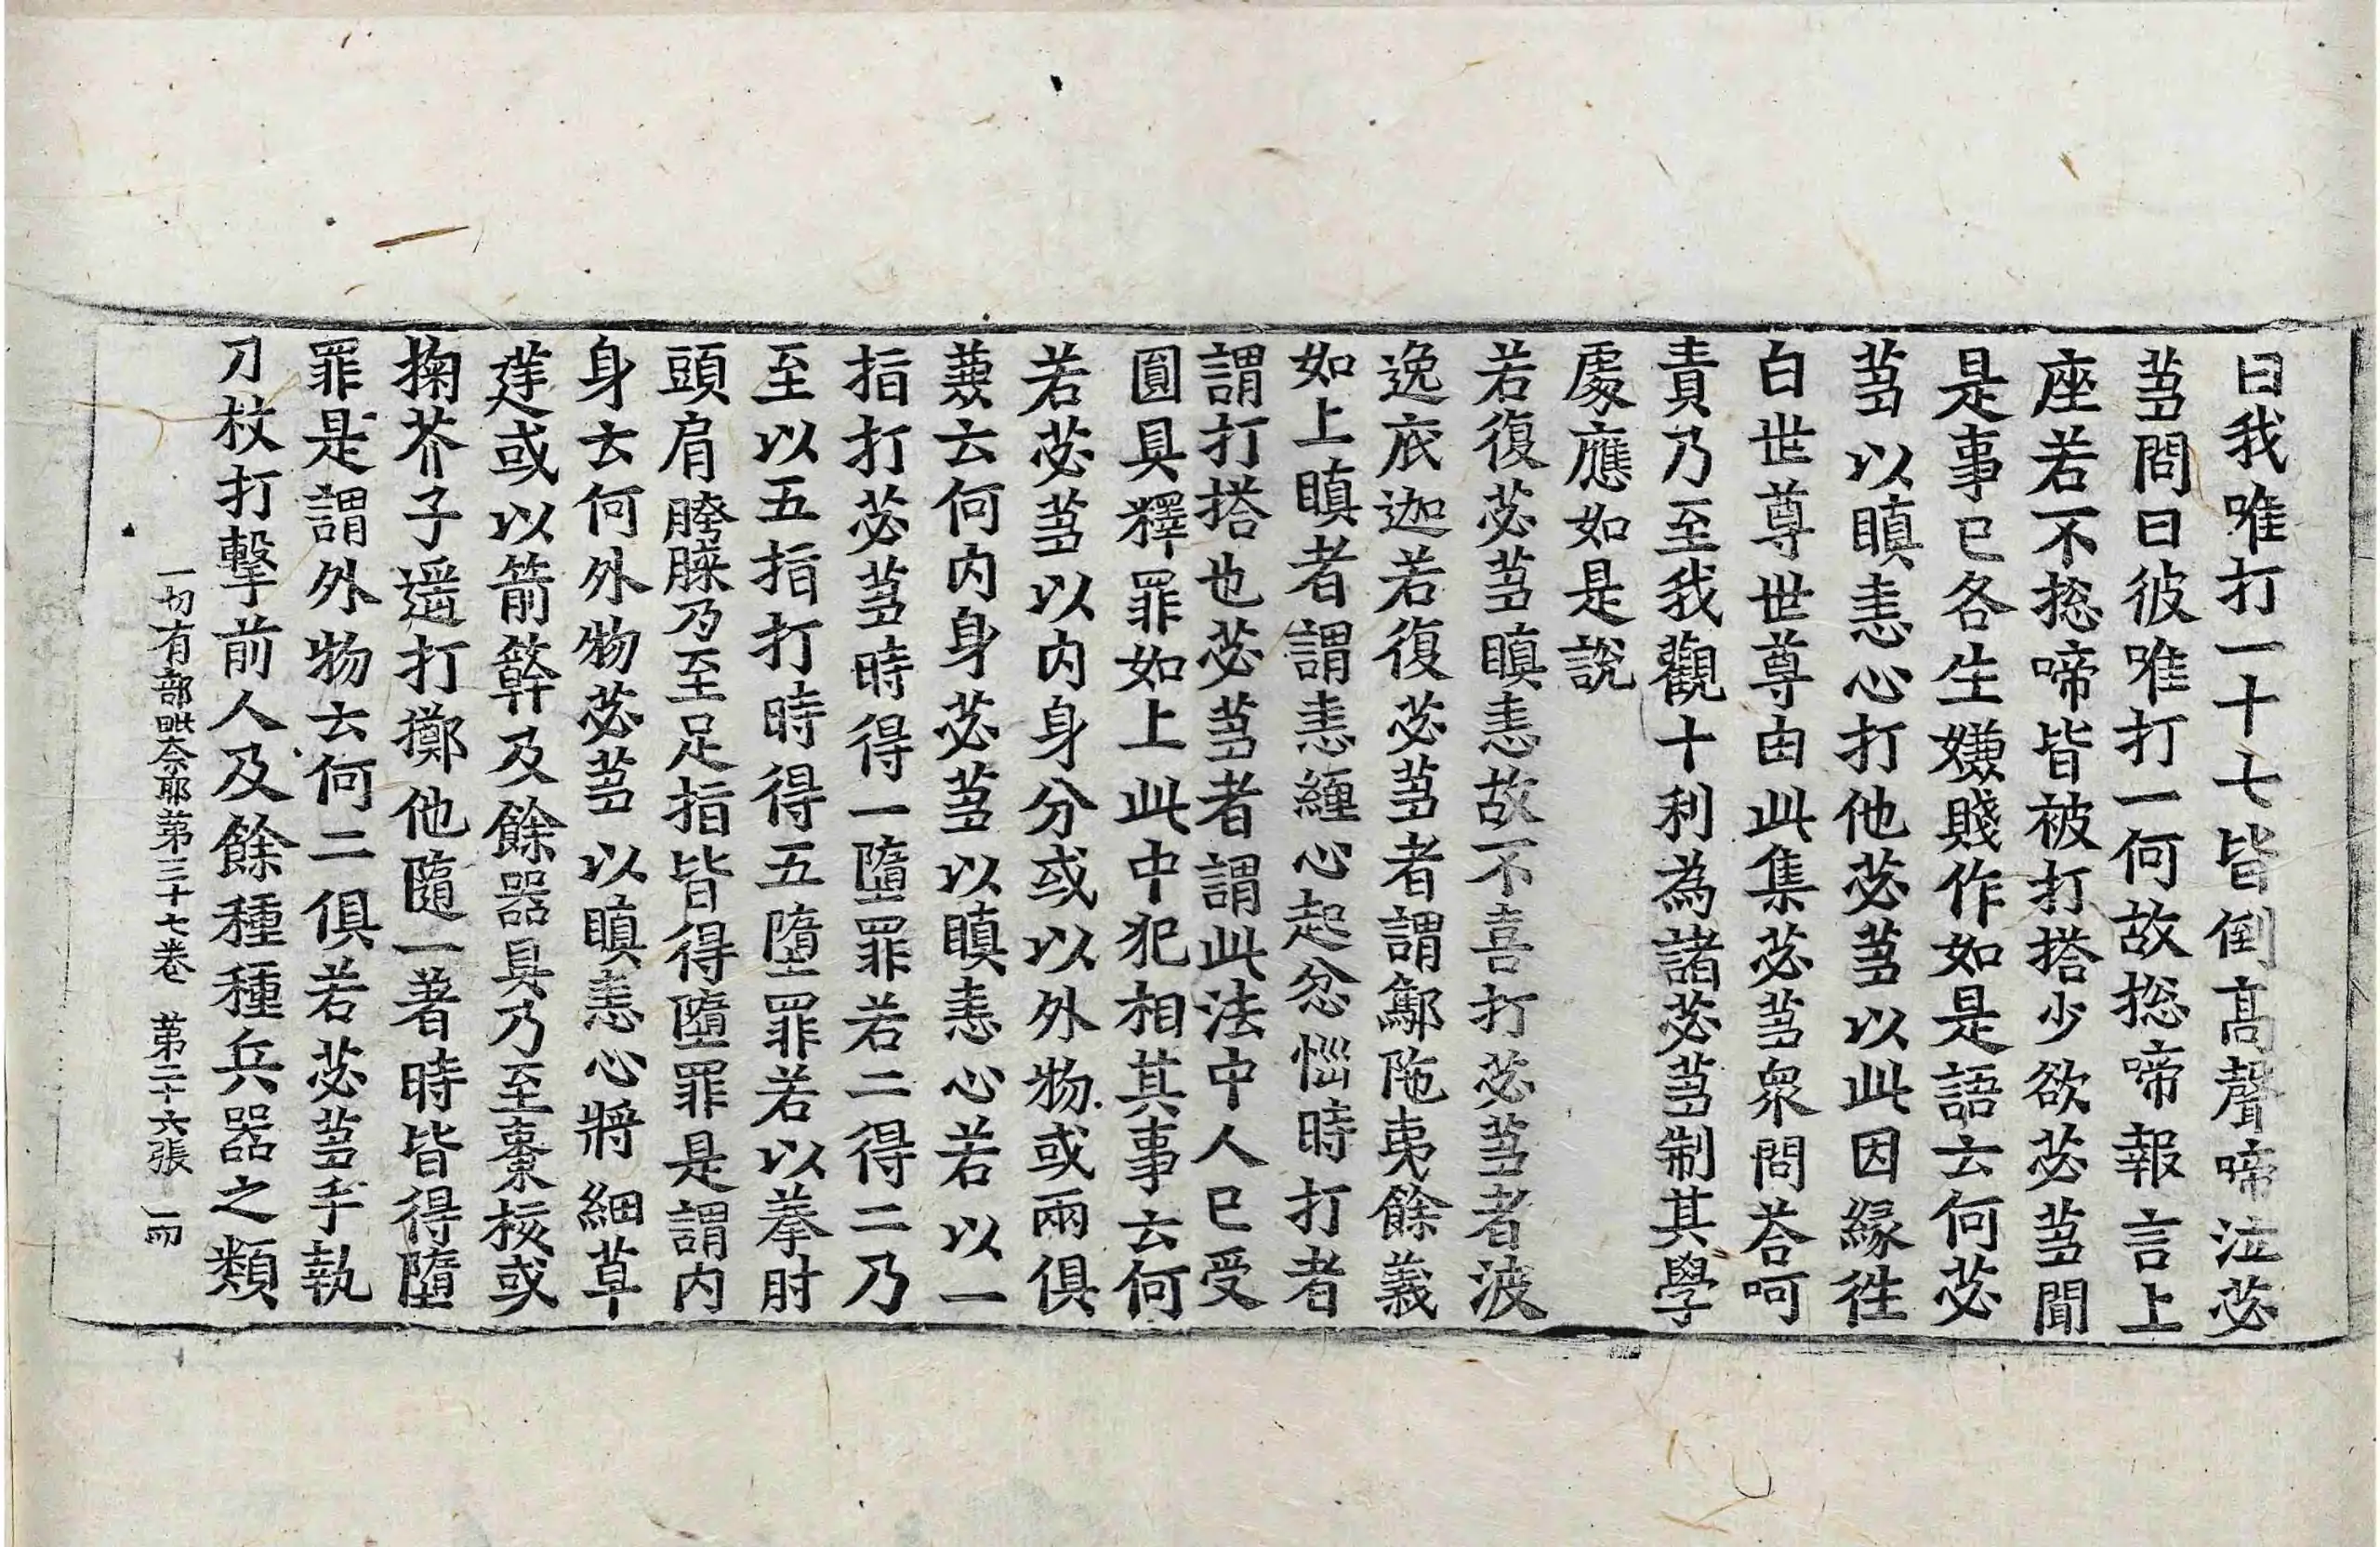 曰我唯打一十七皆倒高聲啼泣苾
芻問曰彼唯打一何故揔啼報言上
座若不揔啼皆被打搭少欲苾芻聞
是事已各生嫌賤作如是語云何苾
芻以瞋恚心打他苾芻以此因緣徃
白世尊世尊由此集苾芻衆問荅呵
責乃至我觀十利為諸苾芻制其學
處應如是說
若復苾芻瞋恚故不喜打苾芻者波
逸底迦若復苾芻者謂鄔陁夷餘義
如上瞋者謂恚纏心起忿惱時打者
謂打搭也苾芻者謂此法中人已受
圓具釋罪如上此中犯相其事云何
若苾芻以內身分或以外物或兩俱
䕭云何內身苾芻以瞋恚心若以一
指打苾芻時得一墮罪若二得二乃
至以五指打時得五墮罪若以拳肘
頭肩膀膝乃至足指皆得墮罪是謂內
身云何外物苾芻以瞋恚心將細草
莛或以箭簳及餘器具乃至棗核或
掬芥子遥打擲他隨一著時皆得墮
罪是謂外物云何二俱若苾芻手執
刀杖打擊前人及餘種種兵器之類
一切有部毗奈耶第三十七卷 第二十六張 一而